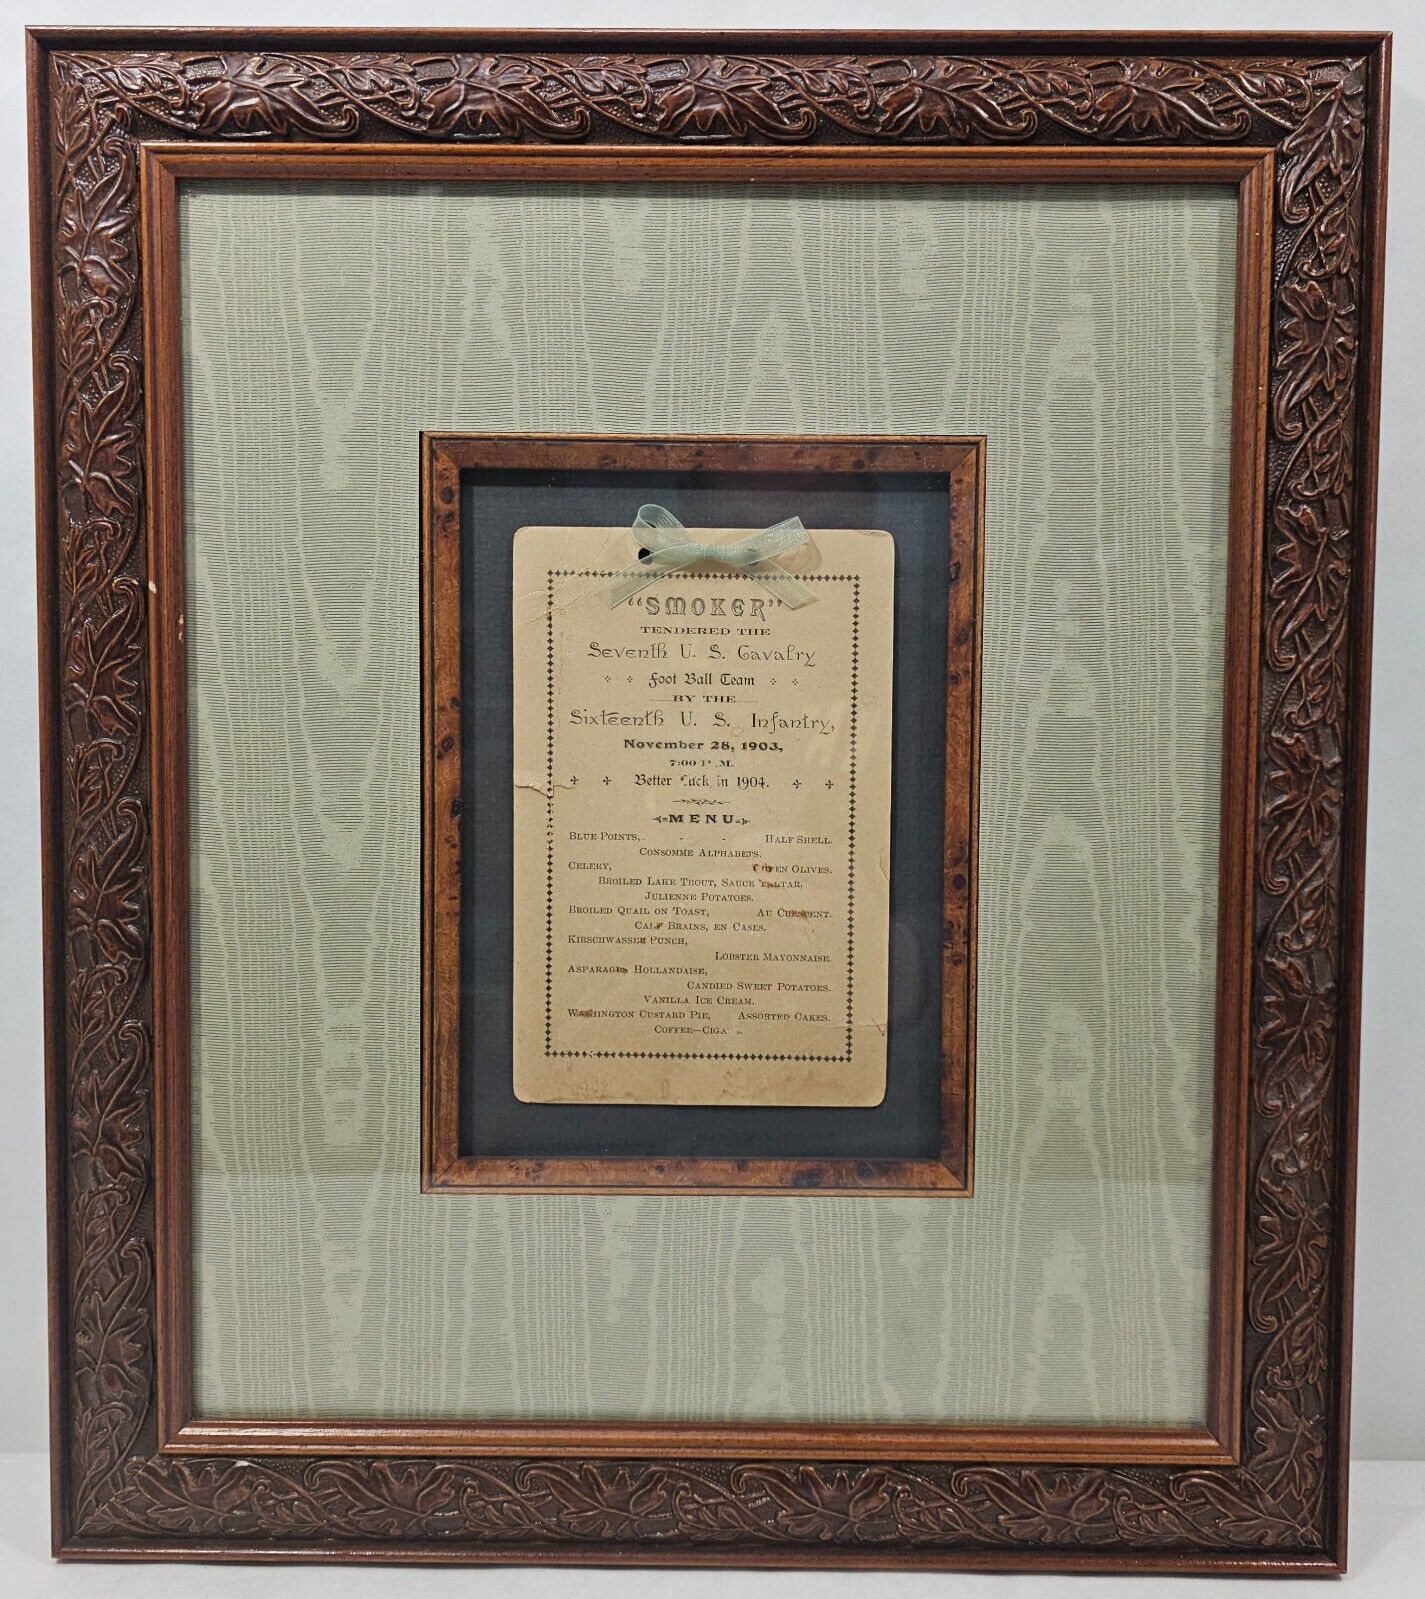 "SMOKER"
TENDERED THE
Seventh U. S. Cavalry
Foot Ball Team
BY THE
Sixteenth U. S. Infantry,
November 28, 1903,
7:00 P.M.
Better Luck in 1904.
MENU
BLUE POINTS, - - HALF SHELL.
CONSOMME ALPHABETS.
CELERY, QUEEN OLIVES.
BROILED LAKE TROUT, SAUCE TARTAR,
JULIENNE POTATOES.
BROILED QUAIL ON TOAST, AU CRESCENT.
CALF BRAINS, EN CASES.
KIRSCHWASSER PUNCH,
LOBSTER MAYONNAISE.
ASPARAGUS HOLLANDAISE,
CANDIED SWEET POTATOES.
VANILLA ICE CREAM.
WASHINGTON CUSTARD PIE, ASSORTED CAKES.
COFFEE—